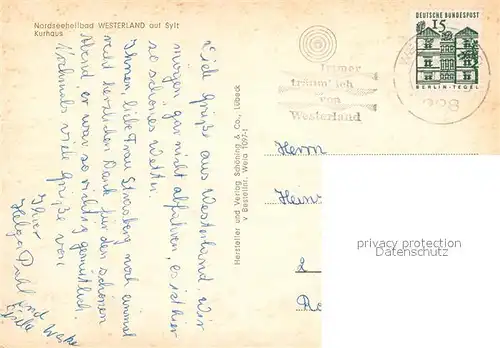 Nordseeheilbad WESTERLAND auf Sylt
Kurhaus
Viele Grüße aus Westerland. Wir
mögen gar nicht abfahren, es ist hier
so schönes Wetter.
Ihnen, liebe Frau Strasberg noch einmal
recht herzlichen Dank für den schönen
Abend, er war so richtig gemütlich.
Nochmals viele Grüße von
Ihrer
Helga Pahl
und
Gisela
Hersteller und Verlag Schöning & Co., Lübeck
Bestellnr. Weld 1097-1
Immer
träumt ich
von
Westerland
DEUTSCHE BUNDESPOST
15
BERLIN-TEGEL
228
Herrn
Hein
privacy protection
Datenschutz